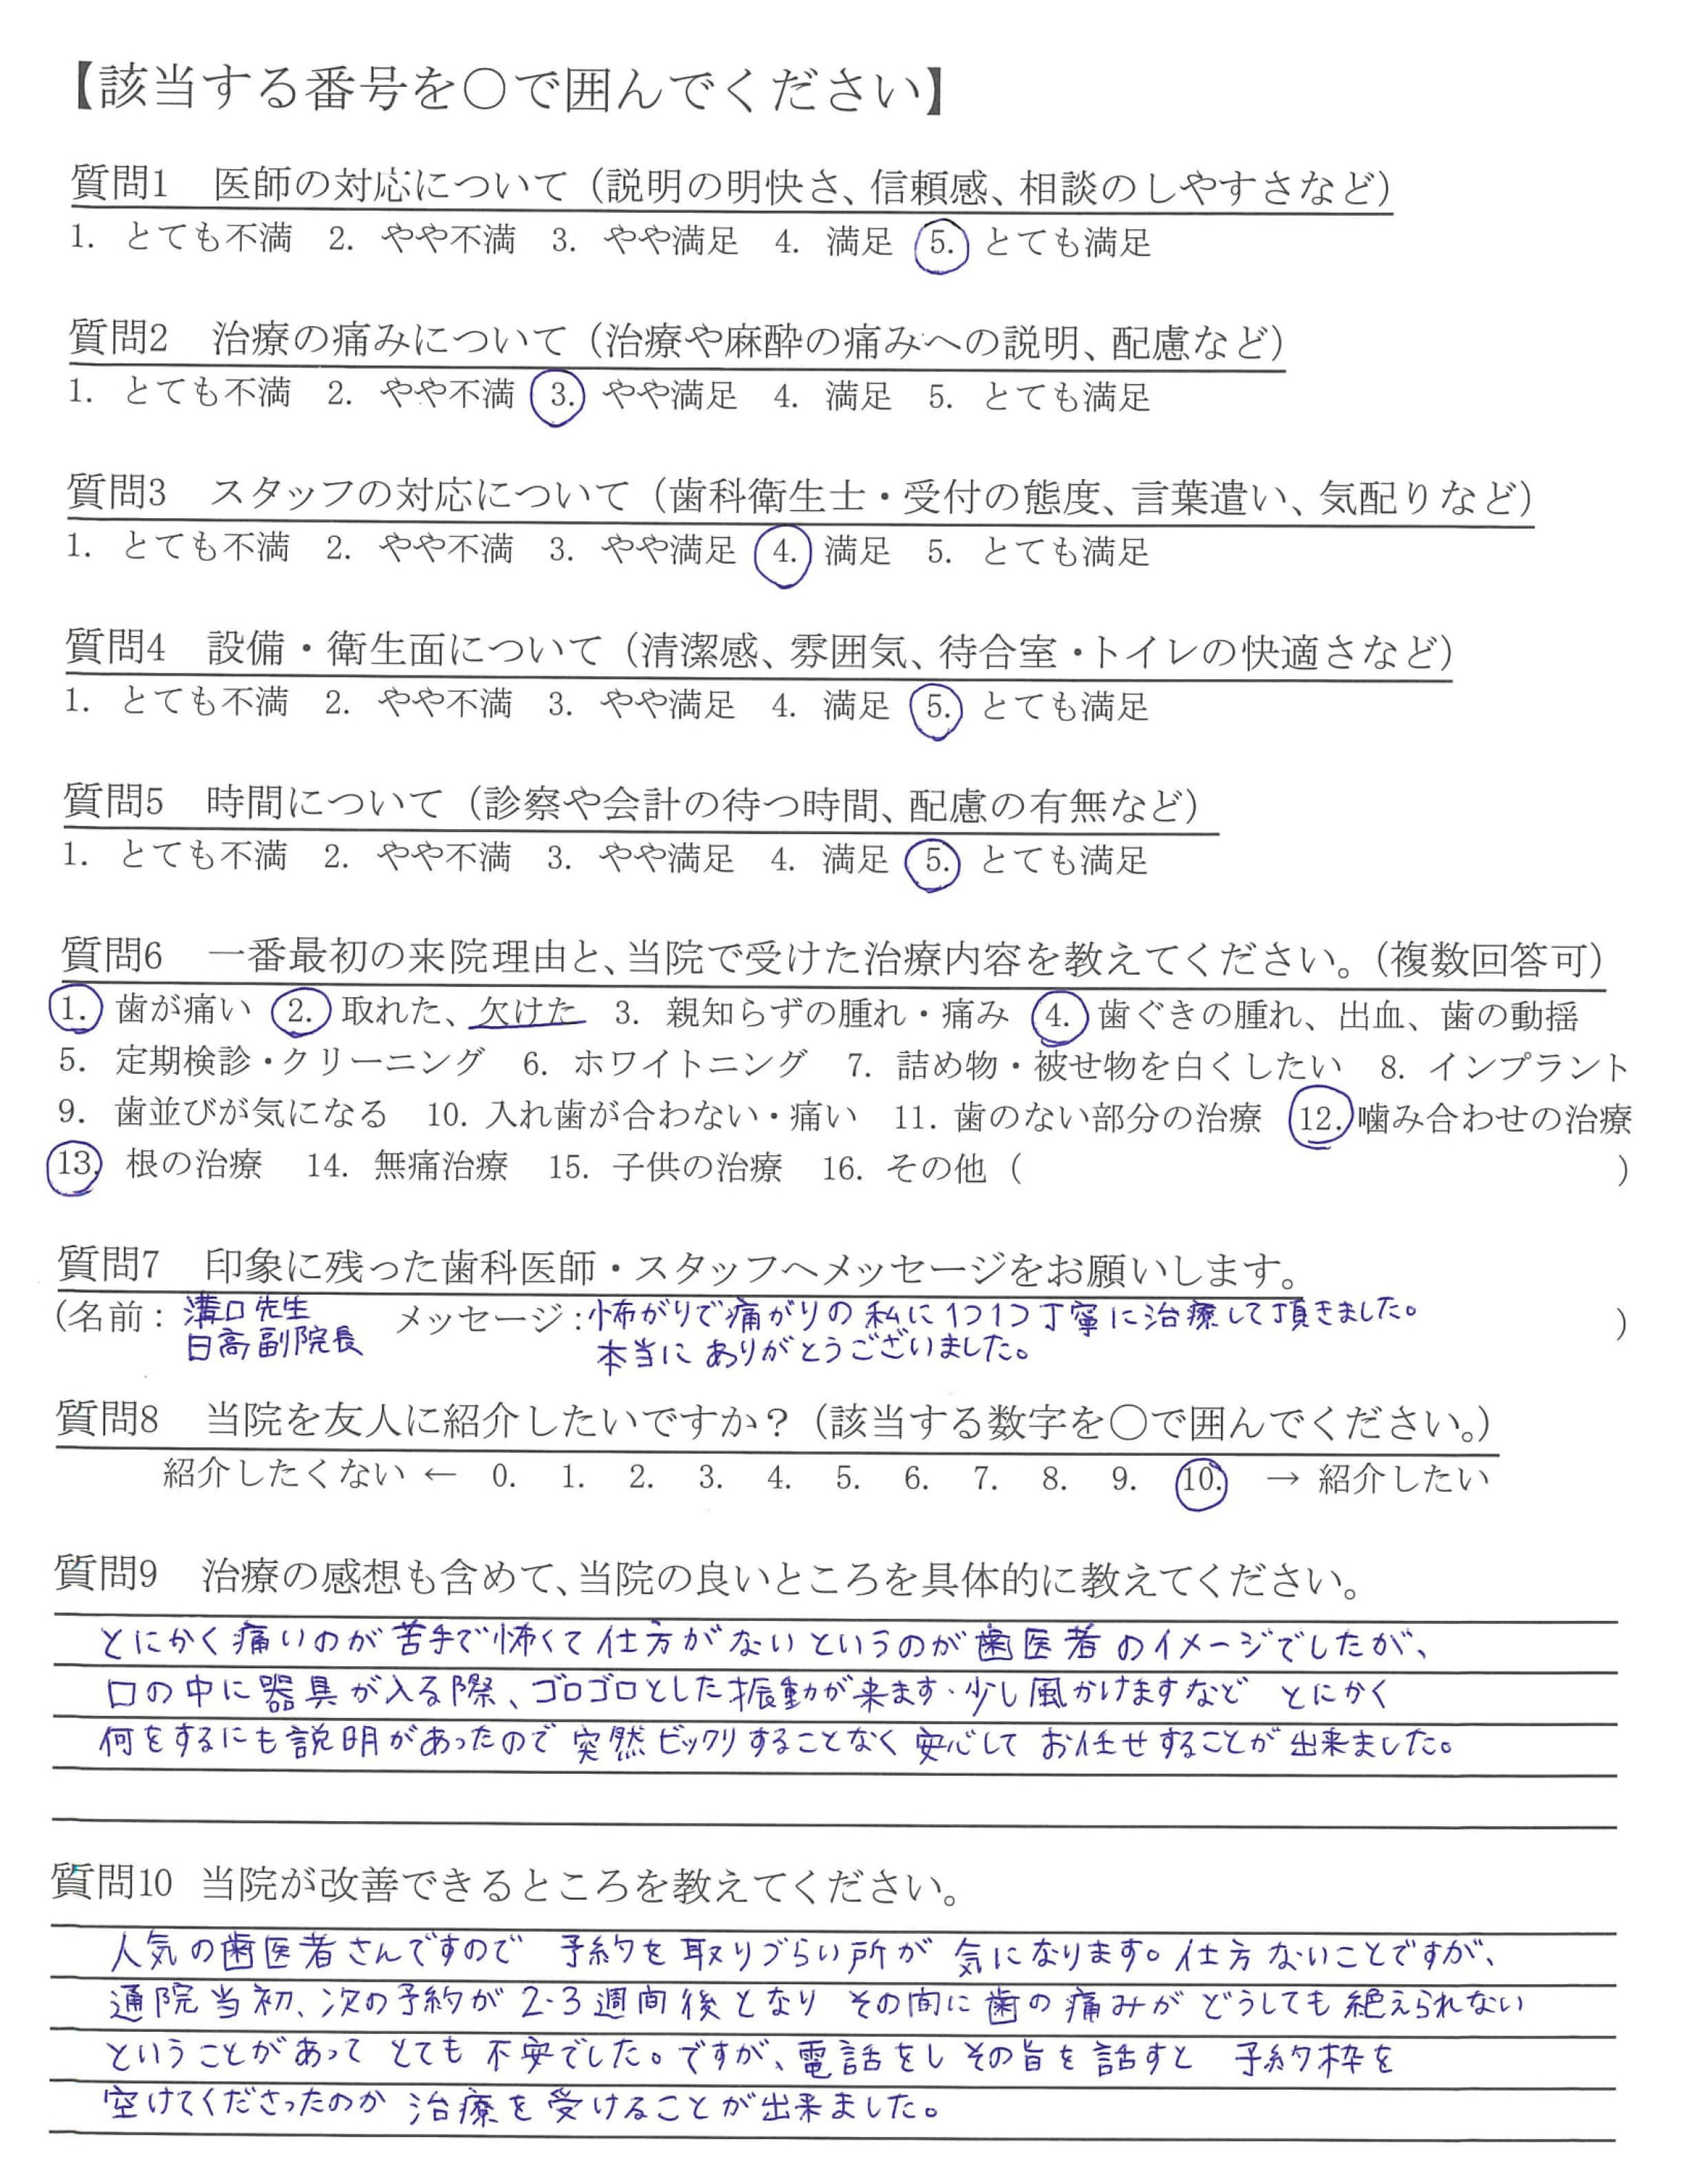 【該当する番号を〇で囲んでください】
質問1　医師の対応について（説明の明快さ、信頼感、相談のしやすさなど）
1. とても不満　2. やや不満　3. やや満足　4. 満足　5. とても満足
質問2　治療の痛みについて（治療や麻酔の痛みへの説明、配慮など）
1. とても不満　2. やや不満　3. やや満足　4. 満足　5. とても満足
質問3　スタッフの対応について（歯科衛生士・受付の態度、言葉遣い、気配りなど）
1. とても不満　2. やや不満　3. やや満足　4. 満足　5. とても満足
質問4　設備・衛生面について（清潔感、雰囲気、待合室・トイレの快適さなど）
1. とても不満　2. やや不満　3. やや満足　4. 満足　5. とても満足
質問5　時間について（診察や会計の待つ時間、配慮の有無など）
1. とても不満　2. やや不満　3. やや満足　4. 満足　5. とても満足
質問6　一番最初の来院理由と、当院で受けた治療内容を教えてください。（複数回答可）
1. 歯が痛い　2. 取れた、欠けた　3. 親知らずの腫れ・痛み　4. 歯ぐきの腫れ、出血、歯の動揺
5. 定期検診・クリーニング　6. ホワイトニング　7. 詰め物・被せ物を白くしたい　8. インプラント
9. 歯並びが気になる　10. 入れ歯が合わない・痛い　11. 歯のない部分の治療　12. 噛み合わせの治療
13. 根の治療　14. 無痛治療　15. 子供の治療　16. その他（　）
質問7　印象に残った歯科医師・スタッフへメッセージをお願いします。
（名前：溝口先生　メッセージ：怖がりで痛がりの私に1つ1つ丁寧に治療して頂きました。）
日高副院長　本当にありがとうございました。
質問8　当院を友人に紹介したいですか？（該当する数字を〇で囲んでください。）
紹介したくない ← 0. 1. 2. 3. 4. 5. 6. 7. 8. 9. 10. → 紹介したい
質問9　治療の感想も含めて、当院の良いところを具体的に教えてください。
とにかく痛いのが苦手で怖くて仕方がないというのが歯医者のイメージでしたが、
口の中に器具が入る際、ゴロゴロとした振動が来ます・少し風かけますなど とにかく
何をするにも説明があったので突然ビックリすることなく安心して お任せすることが出来ました。
質問10 当院が改善できるところを教えてください。
人気の歯医者さんですので 予約を取りづらい所が気になります。仕方ないことですが、
通院当初、次の予約が2・3週間後となり その間に歯の痛みがどうしても絶えられない
ということがあって とても不安でした。ですが、電話をしその旨を話すと 予約枠を
空けてくださったのか 治療を受けることが出来ました。